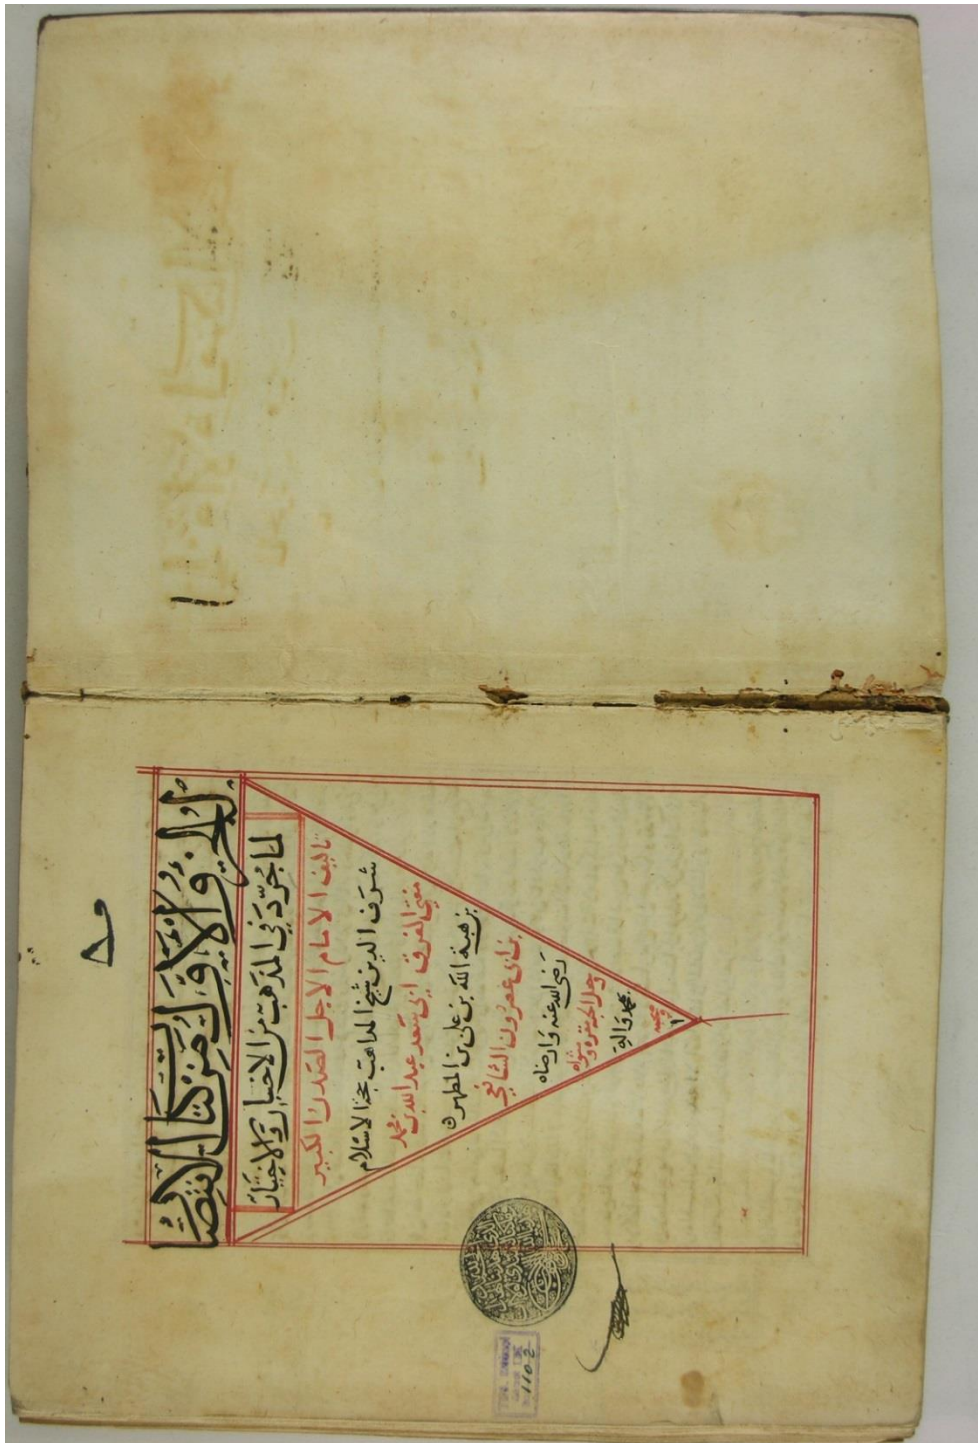 الجزؤ الاول من كتاب الانتصار
لما جرد في المذهب من الاخبار والاختيار
تاليف الامام الاجل الصدر الكبير
شرف الدين شيخ المذاهب حجة الاسلام
مفتي الفرق ابي سعد عبد الله بن محمد
بن هبة الله بن علي بن المطهر
بن ابي عصرون الشافعي
رضي الله عنه وارضاه
وجعل الجنة ومثواه
بمحمد واله
وصحبه